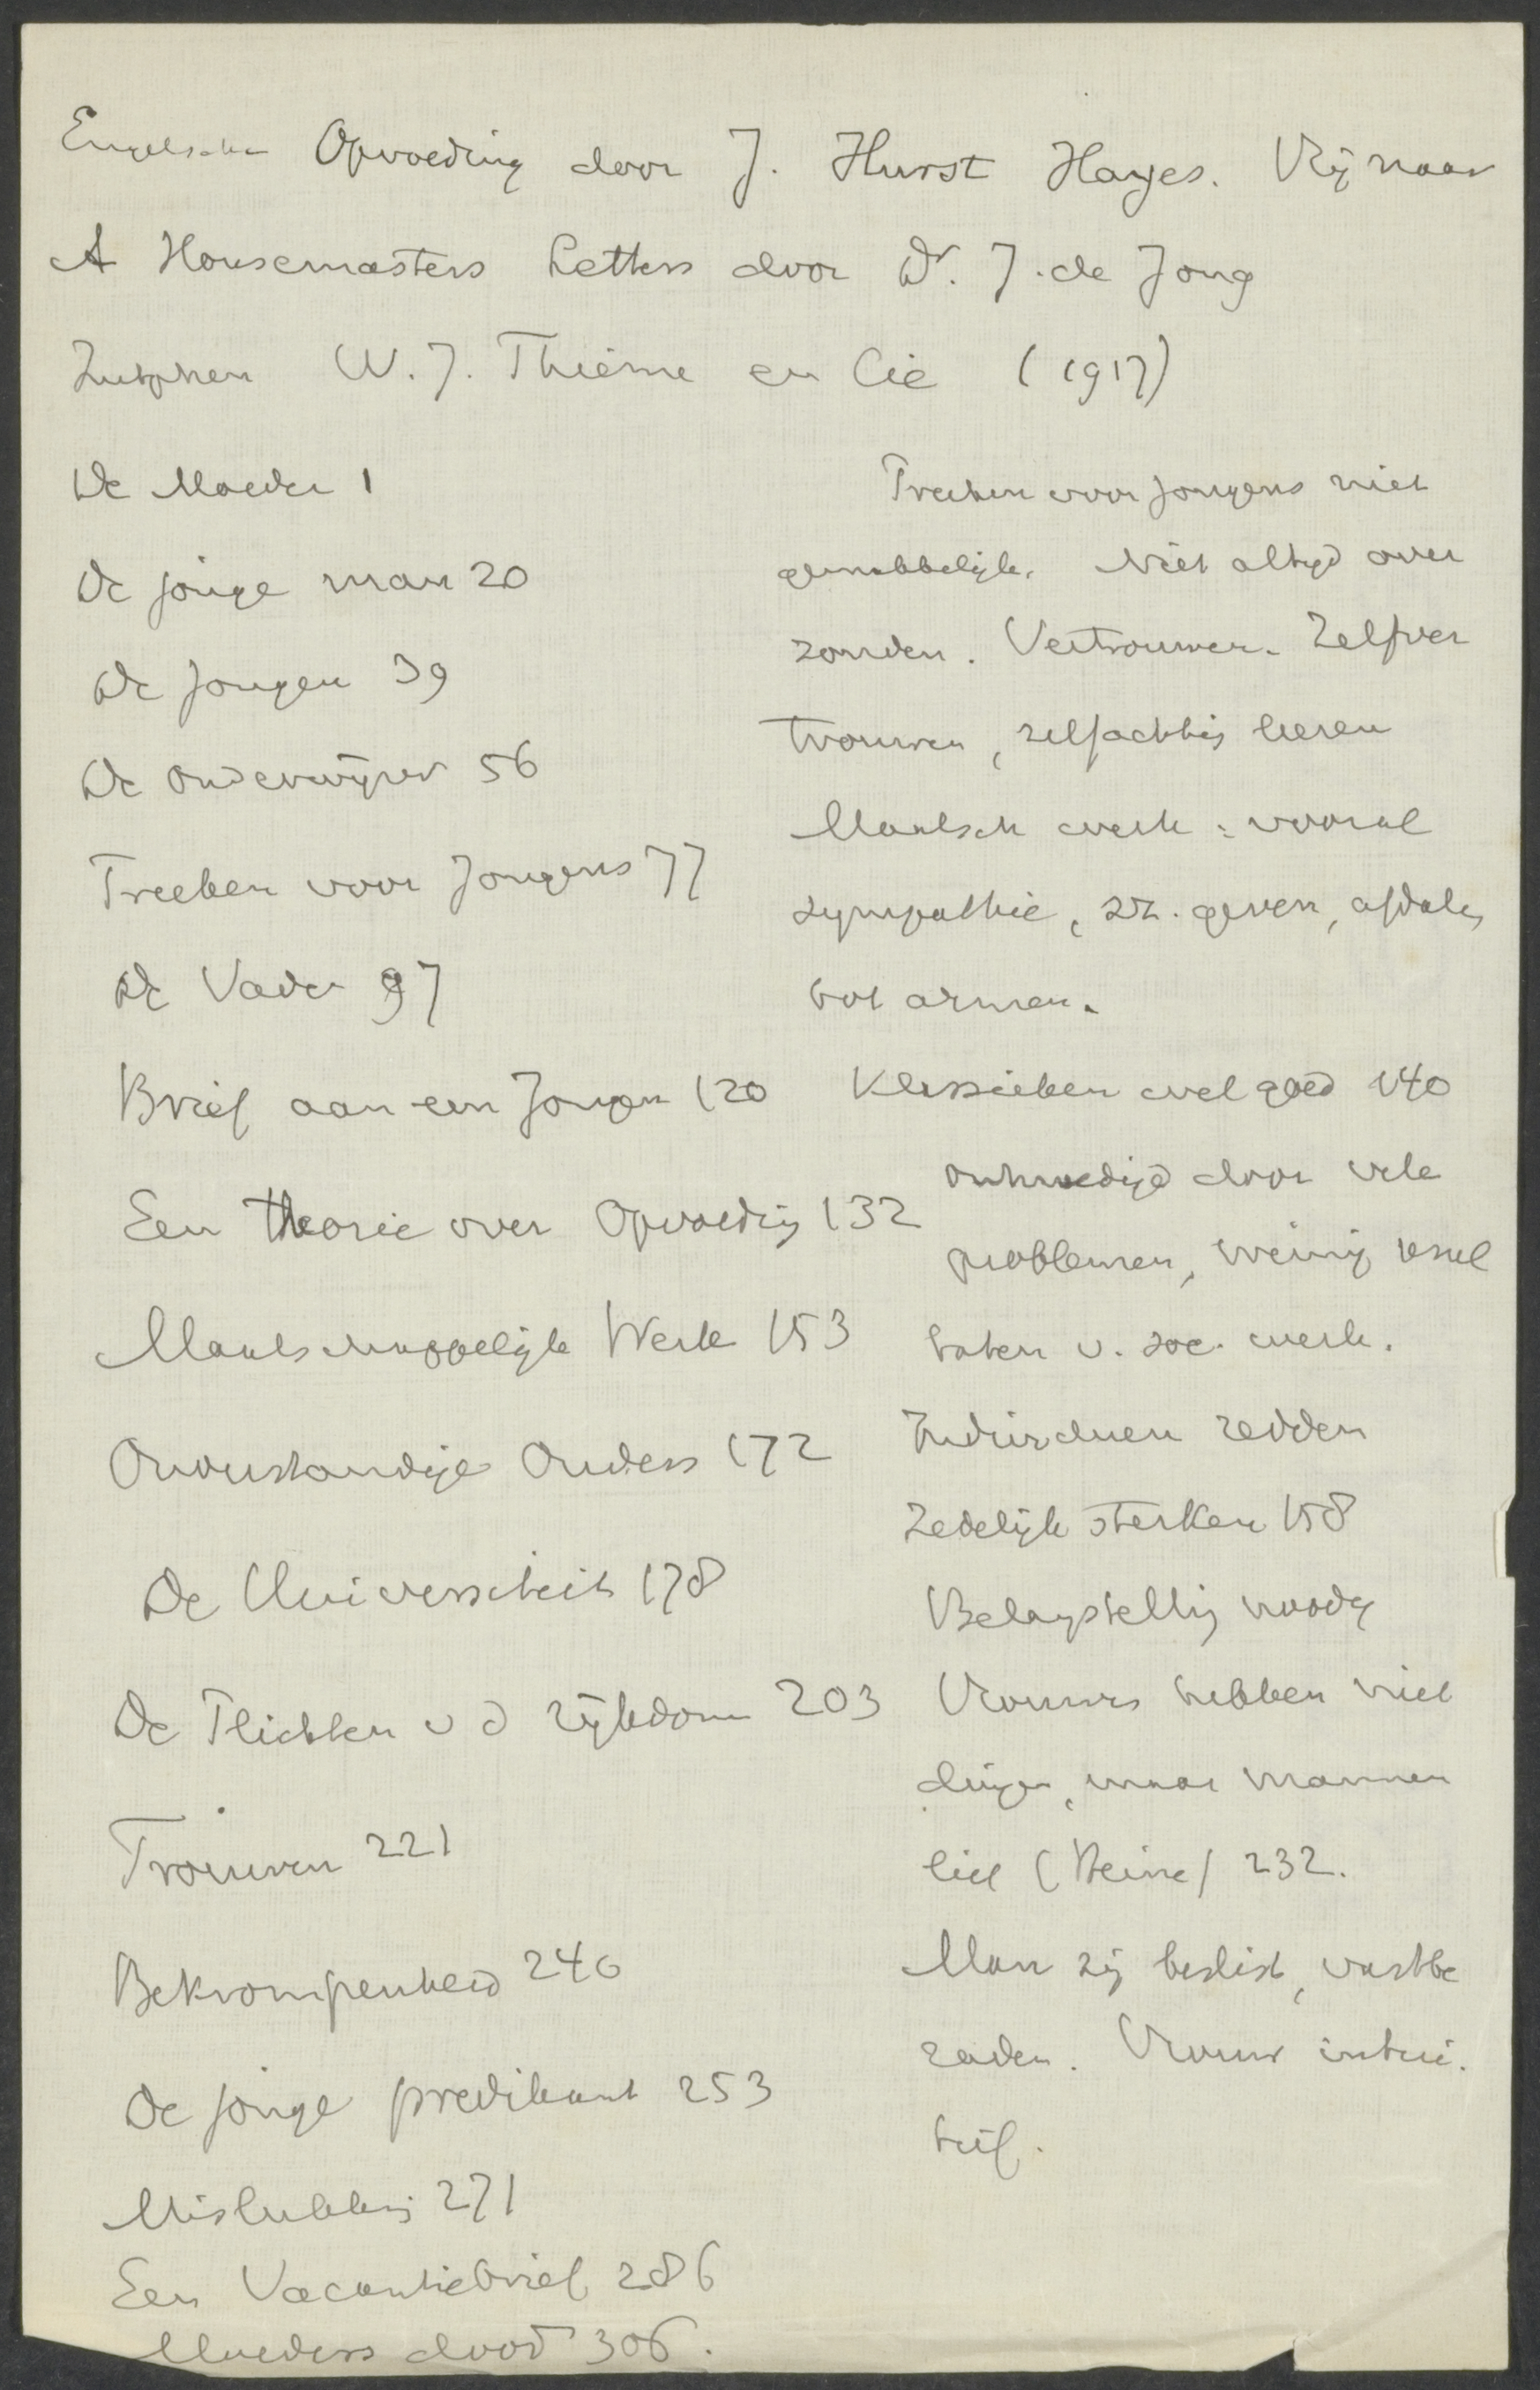 Engelsche Opvoeding door J. Hurst Hayes. Vrij naar
A Housemasters Letters door Dr. J. de Jong
Zutphen W. J. Thieme en Cie (1917)
De Moeder 1
De jonge man 20
De jongen 39
De onderwijzer 56
Preeken voor Jongens 77
De Vader 97
Brief aan een Jongen 120
Een theorie over Opvoeding 132
Maatschappelijk Werk 153
Onverstandige Ouders 172
De Universiteit 178
De Plichten v d rijkdom 203
Trouwen 221
Bekrompenheid 240
De jonge predikant 253
Mislukking 271
Een Vacantiebrief 286
Moeders dood 306.
Preeken voor jongens niet
gemakkelijk. Niet altijd over
zonden. Vertrouwen. Zelfver
trouwen, zelfachting leeren
Maatsch werk: vooral
sympathie, geven, afdalen
tot armen.
Klassieken wel goed 140
ontmoedigd door vele
problemen, weinig resul
taten v. soc. werk.
Individuen redden
Zedelijk sterken 158
Belangstelling noodig
Vrouwen hebben niet
dingen, maar mannen
lief (Heine) 232.
Man zij beslist, vastbe
raden. Vrouw intuï.
tief.